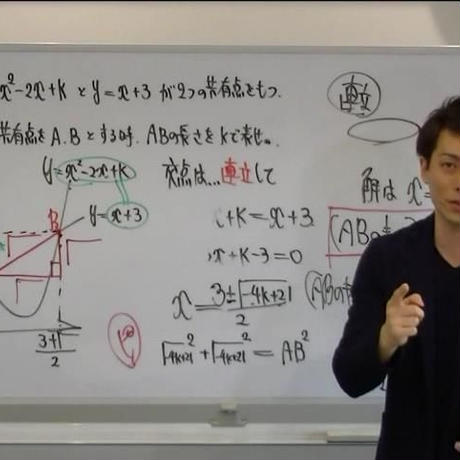 x²-2x+k と y=x+3 が2つの共有点をもつ.
共有点をA.Bとする時. ABの長さをkで表せ.
y=x²-2x+k
y=x+3
B
交点は...直立して
+k=x+3
x+k-3=0
x=3±√-4k+21/2
√-4k+21² + √-4k+21² = AB²
3+√/2
直立
解は x=
(ABの
(ABの